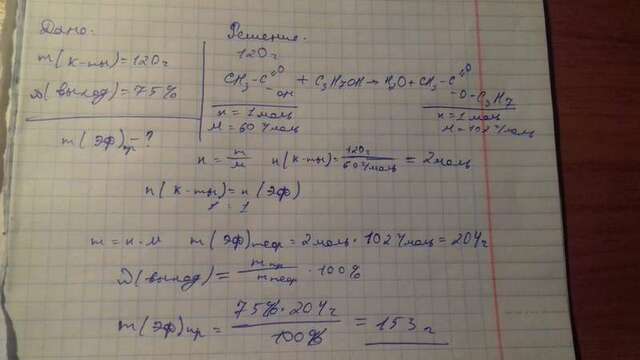 Дано:
Решение.
m(к-ты)=120г
D(выход)=75%
m(эф)пр-?
120г
CH3-C=O -OH + C3H7OH → H2O + CH3-C=O -O-C3H7
n=1моль
M=60г/моль
n=1моль
M=102г/моль
n = m/M n(к-ты)= 120г/60г/моль = 2моль
n(к-ты)=n(эф)
1 : 1
m=n·M m(эф)теор=2моль·102г/моль=204г
D(выход)= mпр/mтеор ·100%
m(эф)пр= 75%·204г/100% = 153г